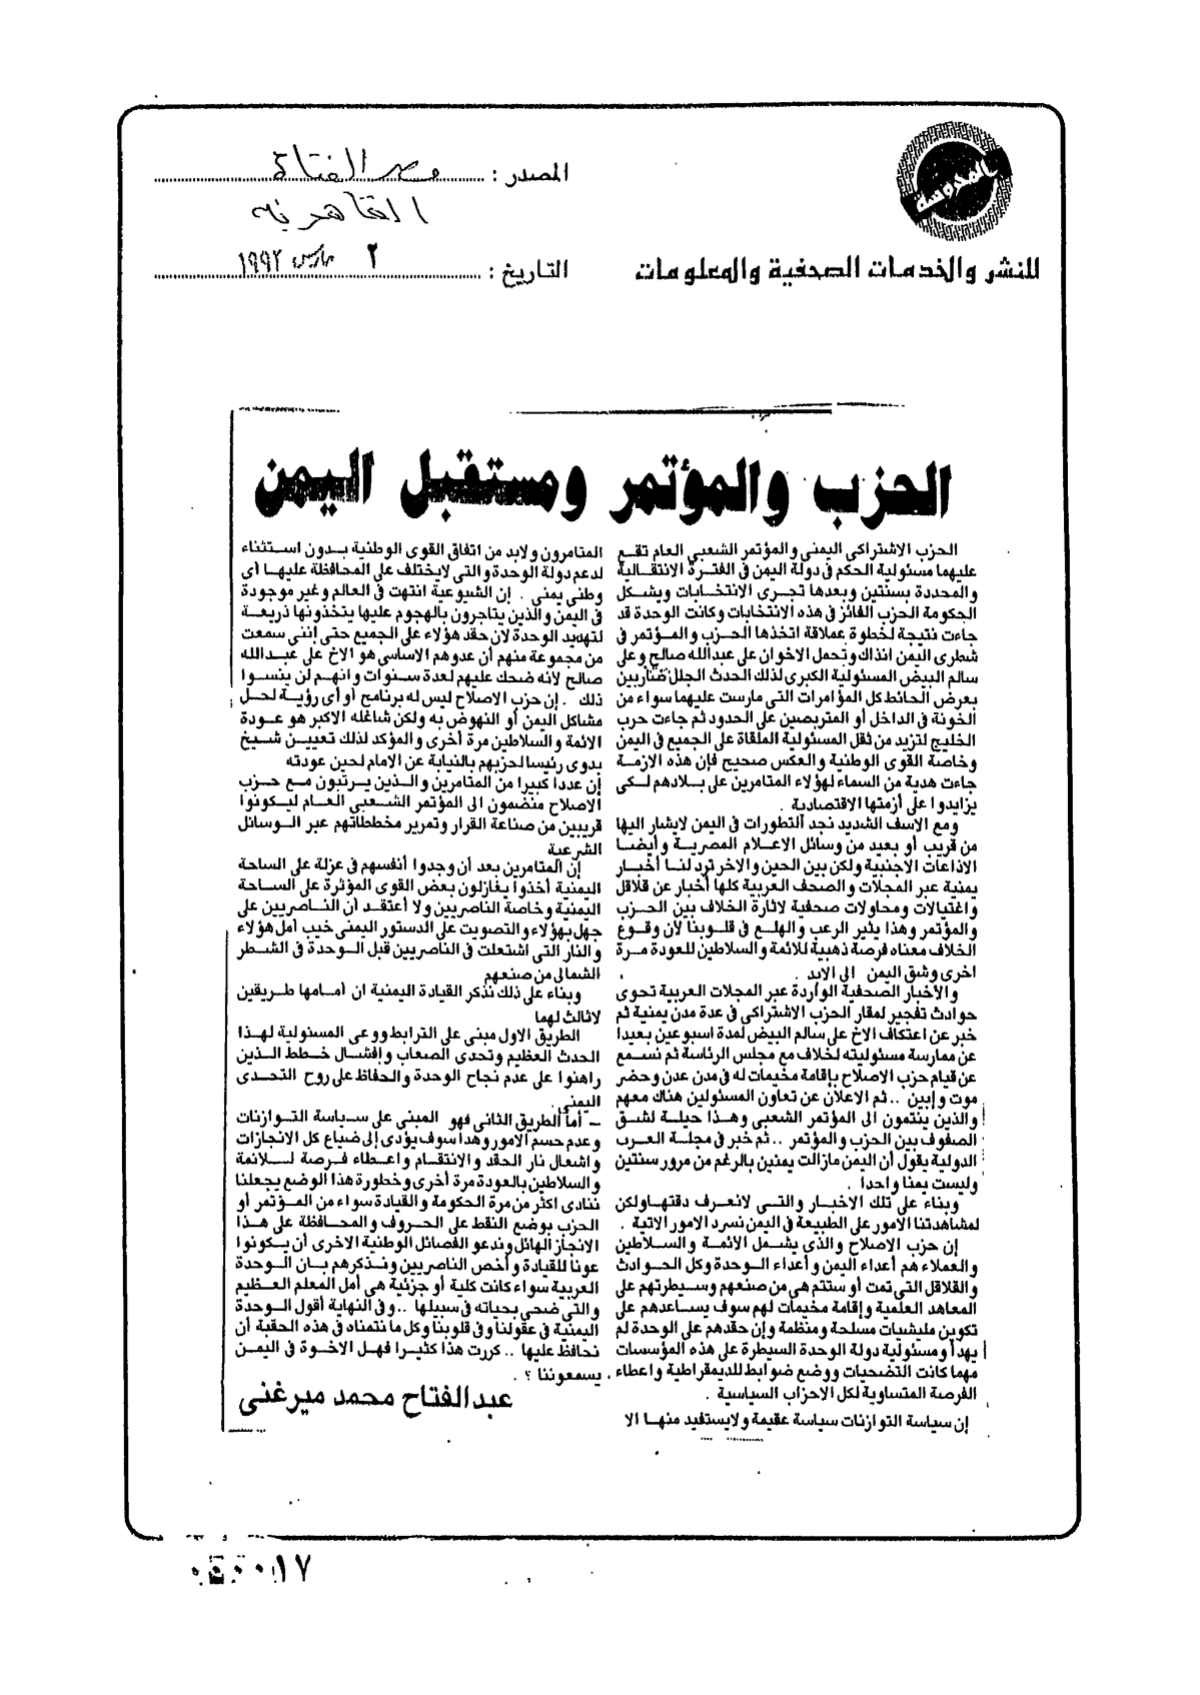 المحروسة
للنشر والخدمات الصحفية والمعلومات
المصدر : مصر الفتاة
القاهرية
التاريخ : ٢ مارس ١٩٩٢
الحزب والمؤتمر ومستقبل اليمن
الحزب الاشتراكى اليمنى والمؤتمر الشعبى العام تقع
عليهما مسئولية الحكم فى دولة اليمن فى الفترة الانتقالية
والمحددة بسنتين وبعدها تجرى الانتخابات ويشكل
الحكومة الحزب الفائز فى هذه الانتخابات وكانت الوحدة قد
جاءت نتيجة لخطوة عملاقة اتخذها الحزب والمؤتمر فى
شطرى اليمن انذاك وتحمل الاخوان على عبدالله صالح وعلى
سالم البيض المسئولية الكبرى لذلك الحدث الجلل ضاربين
بعرض الحائط كل المؤامرات التى مارست عليهما سواء من
الخونة فى الداخل أو المتربصين على الحدود ثم جاءت حرب
الخليج لتزيد من ثقل المسئولية الملقاة على الجميع فى اليمن
وخاصة القوى الوطنية والعكس صحيح فإن هذه الازمة
جاءت هدية من السماء لهؤلاء المتامرين على بلادهم لكى
يزايدوا على أزمتها الاقتصادية .
ومع الاسف الشديد نجد التطورات فى اليمن لايشار اليها
من قريب أو بعيد من وسائل الاعلام المصرية وأيضا
الاذاعات الاجنبية ولكن بين الحين والاخر ترد لنا أخبار
يمنية عبر المجلات والصحف العربية كلها أخبار عن قلاقل
واغتيالات ومحاولات صحفية لاثارة الخلاف بين الحزب
والمؤتمر وهذا يثير الرعب والهلع فى قلوبنا لان وقوع
الخلاف معناه فرصة ذهبية للائمة والسلاطين للعودة مرة
اخرى وشق اليمن الى الابد .
والاخبار الصحفية الواردة عبر المجلات العربية تحوى
حوادث تفجير لمقار الحزب الاشتراكى فى عدة مدن يمنية ثم
خبر عن اعتكاف الاخ على سالم البيض لمدة اسبوعين بعيدا
عن ممارسة مسئوليته لخلاف مع مجلس الرئاسة ثم نسمع
عن قيام حزب الاصلاح بإقامة مخيمات له فى مدن عدن وحضر
موت وإبين .. ثم الاعلان عن تعاون المسئولين هناك معهم
والذين ينتمون الى المؤتمر الشعبى وهذا حيلة لشق
الصفوف بين الحزب والمؤتمر .. ثم خبر فى مجلة العرب
الدولية يقول أن اليمن مازالت يمنين بالرغم من مرور سنتين
وليست يمنا واحدا .
وبناء على تلك الاخبار والتى لانعرف دقتها ولكن
لمشاهدتنا الامور على الطبيعة فى اليمن نسرد الامور الاتية .
إن حزب الاصلاح والذى يشمل الائمة والسلاطين
والعملاء هم أعداء اليمن وأعداء الوحدة وكل الحوادث
والقلاقل التى تمت أو ستتم هى من صنعهم وسيطرتهم على
المعاهد العلمية وإقامة مخيمات لهم سوف يساعدهم على
تكوين مليشيات مسلحة ومنظمة وإن حقدهم على الوحدة لم
يهدأ ومسئولية دولة الوحدة السيطرة على هذه المؤسسات
مهما كانت التضحيات ووضع ضوابط للديمقراطية واعطاء
الفرصة المتساوية لكل الاحزاب السياسية .
إن سياسة التوازنات سياسة عقيمة ولايستفيد منها الا
المتامرون ولابد من اتفاق القوى الوطنية بدون استثناء
لدعم دولة الوحدة والتى لايختلف على المحافظة عليها أى
وطنى يمنى . إن الشيوعية انتهت فى العالم وغير موجودة
فى اليمن والذين يتاجرون بالهجوم عليها يتخذونها ذريعة
لتهديد الوحدة لان حقد هؤلاء على الجميع حتى إننى سمعت
من مجموعة منهم أن عدوهم الاساسى هو الاخ على عبدالله
صالح لانه ضحك عليهم لعدة سنوات وانهم لن ينسوا
ذلك . إن حزب الاصلاح ليس له برنامج أو أى رؤية لحل
مشاكل اليمن أو النهوض به ولكن شاغله الاكبر هو عودة
الائمة والسلاطين مرة أخرى والمؤكد لذلك تعيين شيخ
بدوى رئيسا لحزبهم بالنيابة عن الامام لحين عودته
إن عددا كبيرا من المتامرين والذين يرتبون مع حزب
الاصلاح منضمون الى المؤتمر الشعبى العام ليكونوا
قريبين من صناعة القرار وتمرير مخططاتهم عبر الوسائل
الشرعية
إن المتامرين بعد أن وجدوا أنفسهم فى عزلة على الساحة
اليمنية أخذوا يغازلون بعض القوى المؤثرة على الساحة
اليمنية وخاصة الناصريين ولا أعتقد أن الناصريين على
جهل بهؤلاء والتصويت على الدستور اليمنى خيب أمل هؤلاء
والنار التى اشتعلت فى الناصريين قبل الوحدة فى الشطر
الشمالى من صنعهم
وبناء على ذلك نذكر القيادة اليمنية ان أمامها طريقين
لا ثالث لهما
الطريق الاول مبنى على الترابط ووعى المسئولية لهذا
الحدث العظيم وتحدى الصعاب وإفشال خطط الذين
راهنوا على عدم نجاح الوحدة والحفاظ على روح التحدى
اليمنى .
ـ أما الطريق الثانى فهو المبنى على سياسة التوازنات
وعدم حسم الامور وهذا سوف يؤدى إلى ضياع كل الانجازات
واشعال نار الحقد والانتقام واعطاء فرصة للائمة
والسلاطين بالعودة مرة أخرى وخطورة هذا الوضع يجعلنا
ننادى اكثر من مرة الحكومة والقيادة سواء من المؤتمر أو
الحزب بوضع النقط على الحروف والمحافظة على هذا
الانجاز الهائل وندعو الفصائل الوطنية الاخرى أن يكونوا
عونا للقيادة وأخص الناصريين ونذكرهم بان الوحدة
العربية سواء كانت كلية أو جزئية هى أمل المعلم العظيم
والتى ضحى بحياته فى سبيلها .. وفى النهاية أقول الوحدة
اليمنية فى عقولنا وفى قلوبنا وكل ما نتمناه فى هذه الحقبة أن
نحافظ عليها .. كررت هذا كثيرا فهل الاخوة فى اليمن
يسمعوننا ؟ .
عبدالفتاح محمد ميرغنى